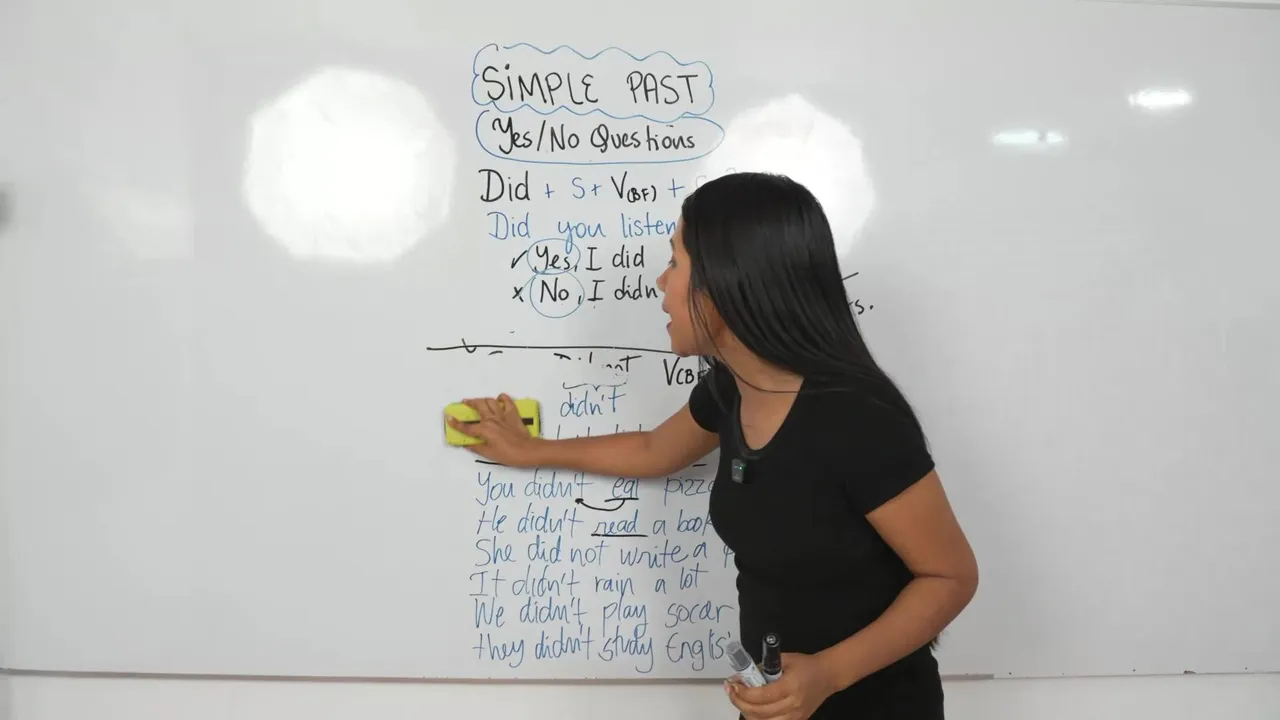 SIMPLE PAST
Yes/No Questions
Did + S + V(BF) +
Did you listen
✓ Yes, I did
x No, I didn
s.
V(B
didn't
You didn't eat pizza
He didn't read a book
She did not write a
It didn't rain a lot
We didn't play soccer
they didn't study Englis